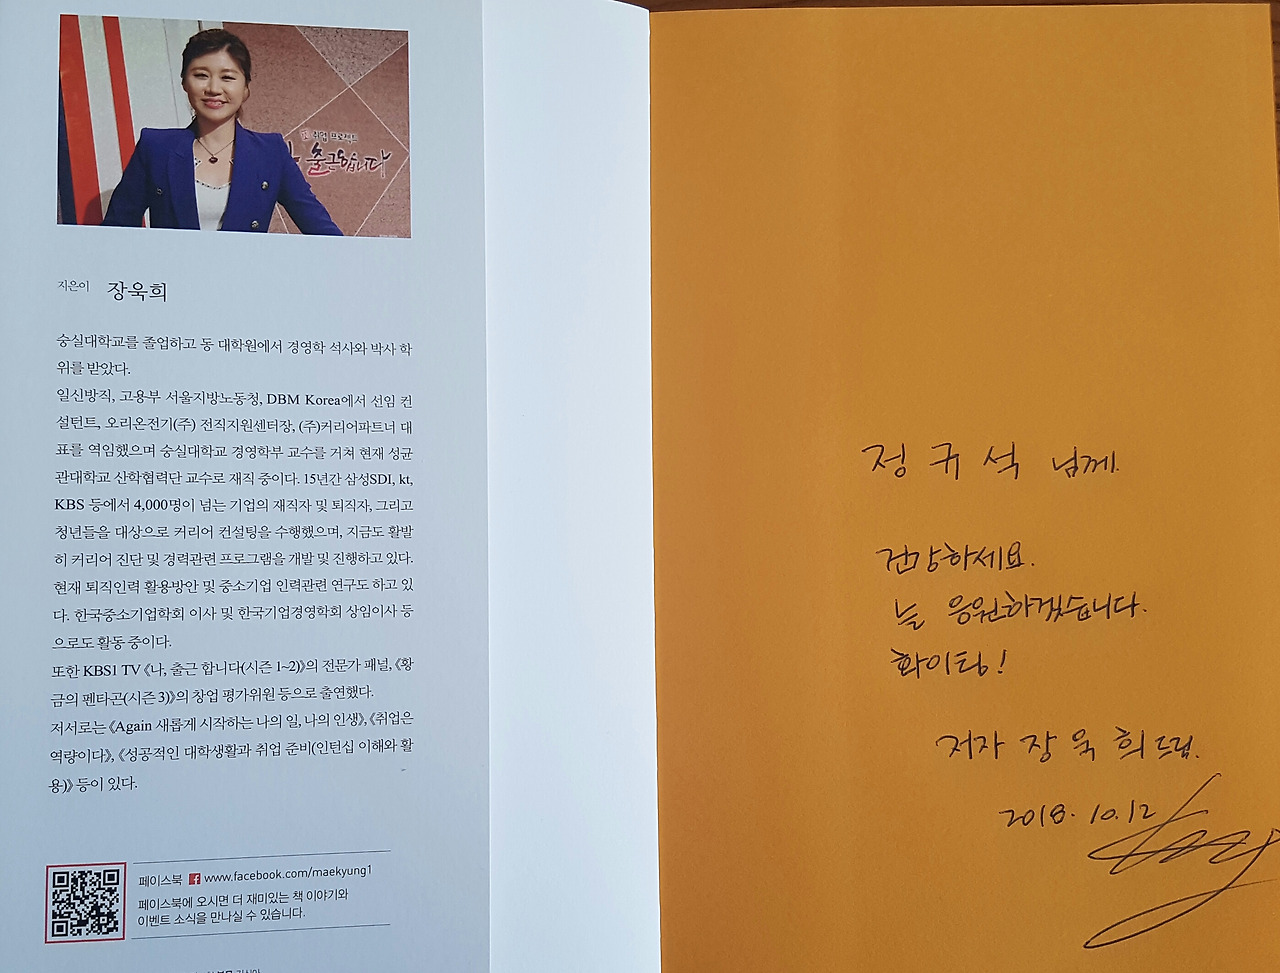 취업 프로젝트
출근합니다
지은이 장욱희
숭실대학교를 졸업하고 동 대학원에서 경영학 석사와 박사 학
위를 받았다.
일신방직, 고용부 서울지방노동청, DBM Korea에서 선임 컨
설턴트, 오리온전기(주) 전직지원센터장, (주)커리어파트너 대
표를 역임했으며 숭실대학교 경영학부 교수를 거쳐 현재 성균
관대학교 산학협력단 교수로 재직 중이다. 15년간 삼성SDI, kt,
KBS 등에서 4,000명이 넘는 기업의 재직자 및 퇴직자, 그리고
청년들을 대상으로 커리어 컨설팅을 수행했으며, 지금도 활발
히 커리어 진단 및 경력관련 프로그램을 개발 및 진행하고 있다.
현재 퇴직인력 활용방안 및 중소기업 인력관련 연구도 하고 있
다. 한국중소기업학회 이사 및 한국기업경영학회 상임이사 등
으로도 활동 중이다.
또한 KBS1 TV 《나, 출근 합니다(시즌 1~2)》의 전문가 패널, 《황
금의 펜타곤(시즌 3)》의 창업 평가위원 등으로 출연했다.
저서로는 《Again 새롭게 시작하는 나의 일, 나의 인생》, 《취업은
역량이다》, 《성공적인 대학생활과 취업 준비(인턴십 이해와 활
용)》 등이 있다.
페이스북 www.facebook.com/maekyung1
페이스북에 오시면 더 재미있는 책 이야기와
이벤트 소식을 만나실 수 있습니다.
정규석 님께.
건강하세요.
늘 응원하겠습니다.
화이팅!
저자 장욱희 드림.
2018. 10. 12